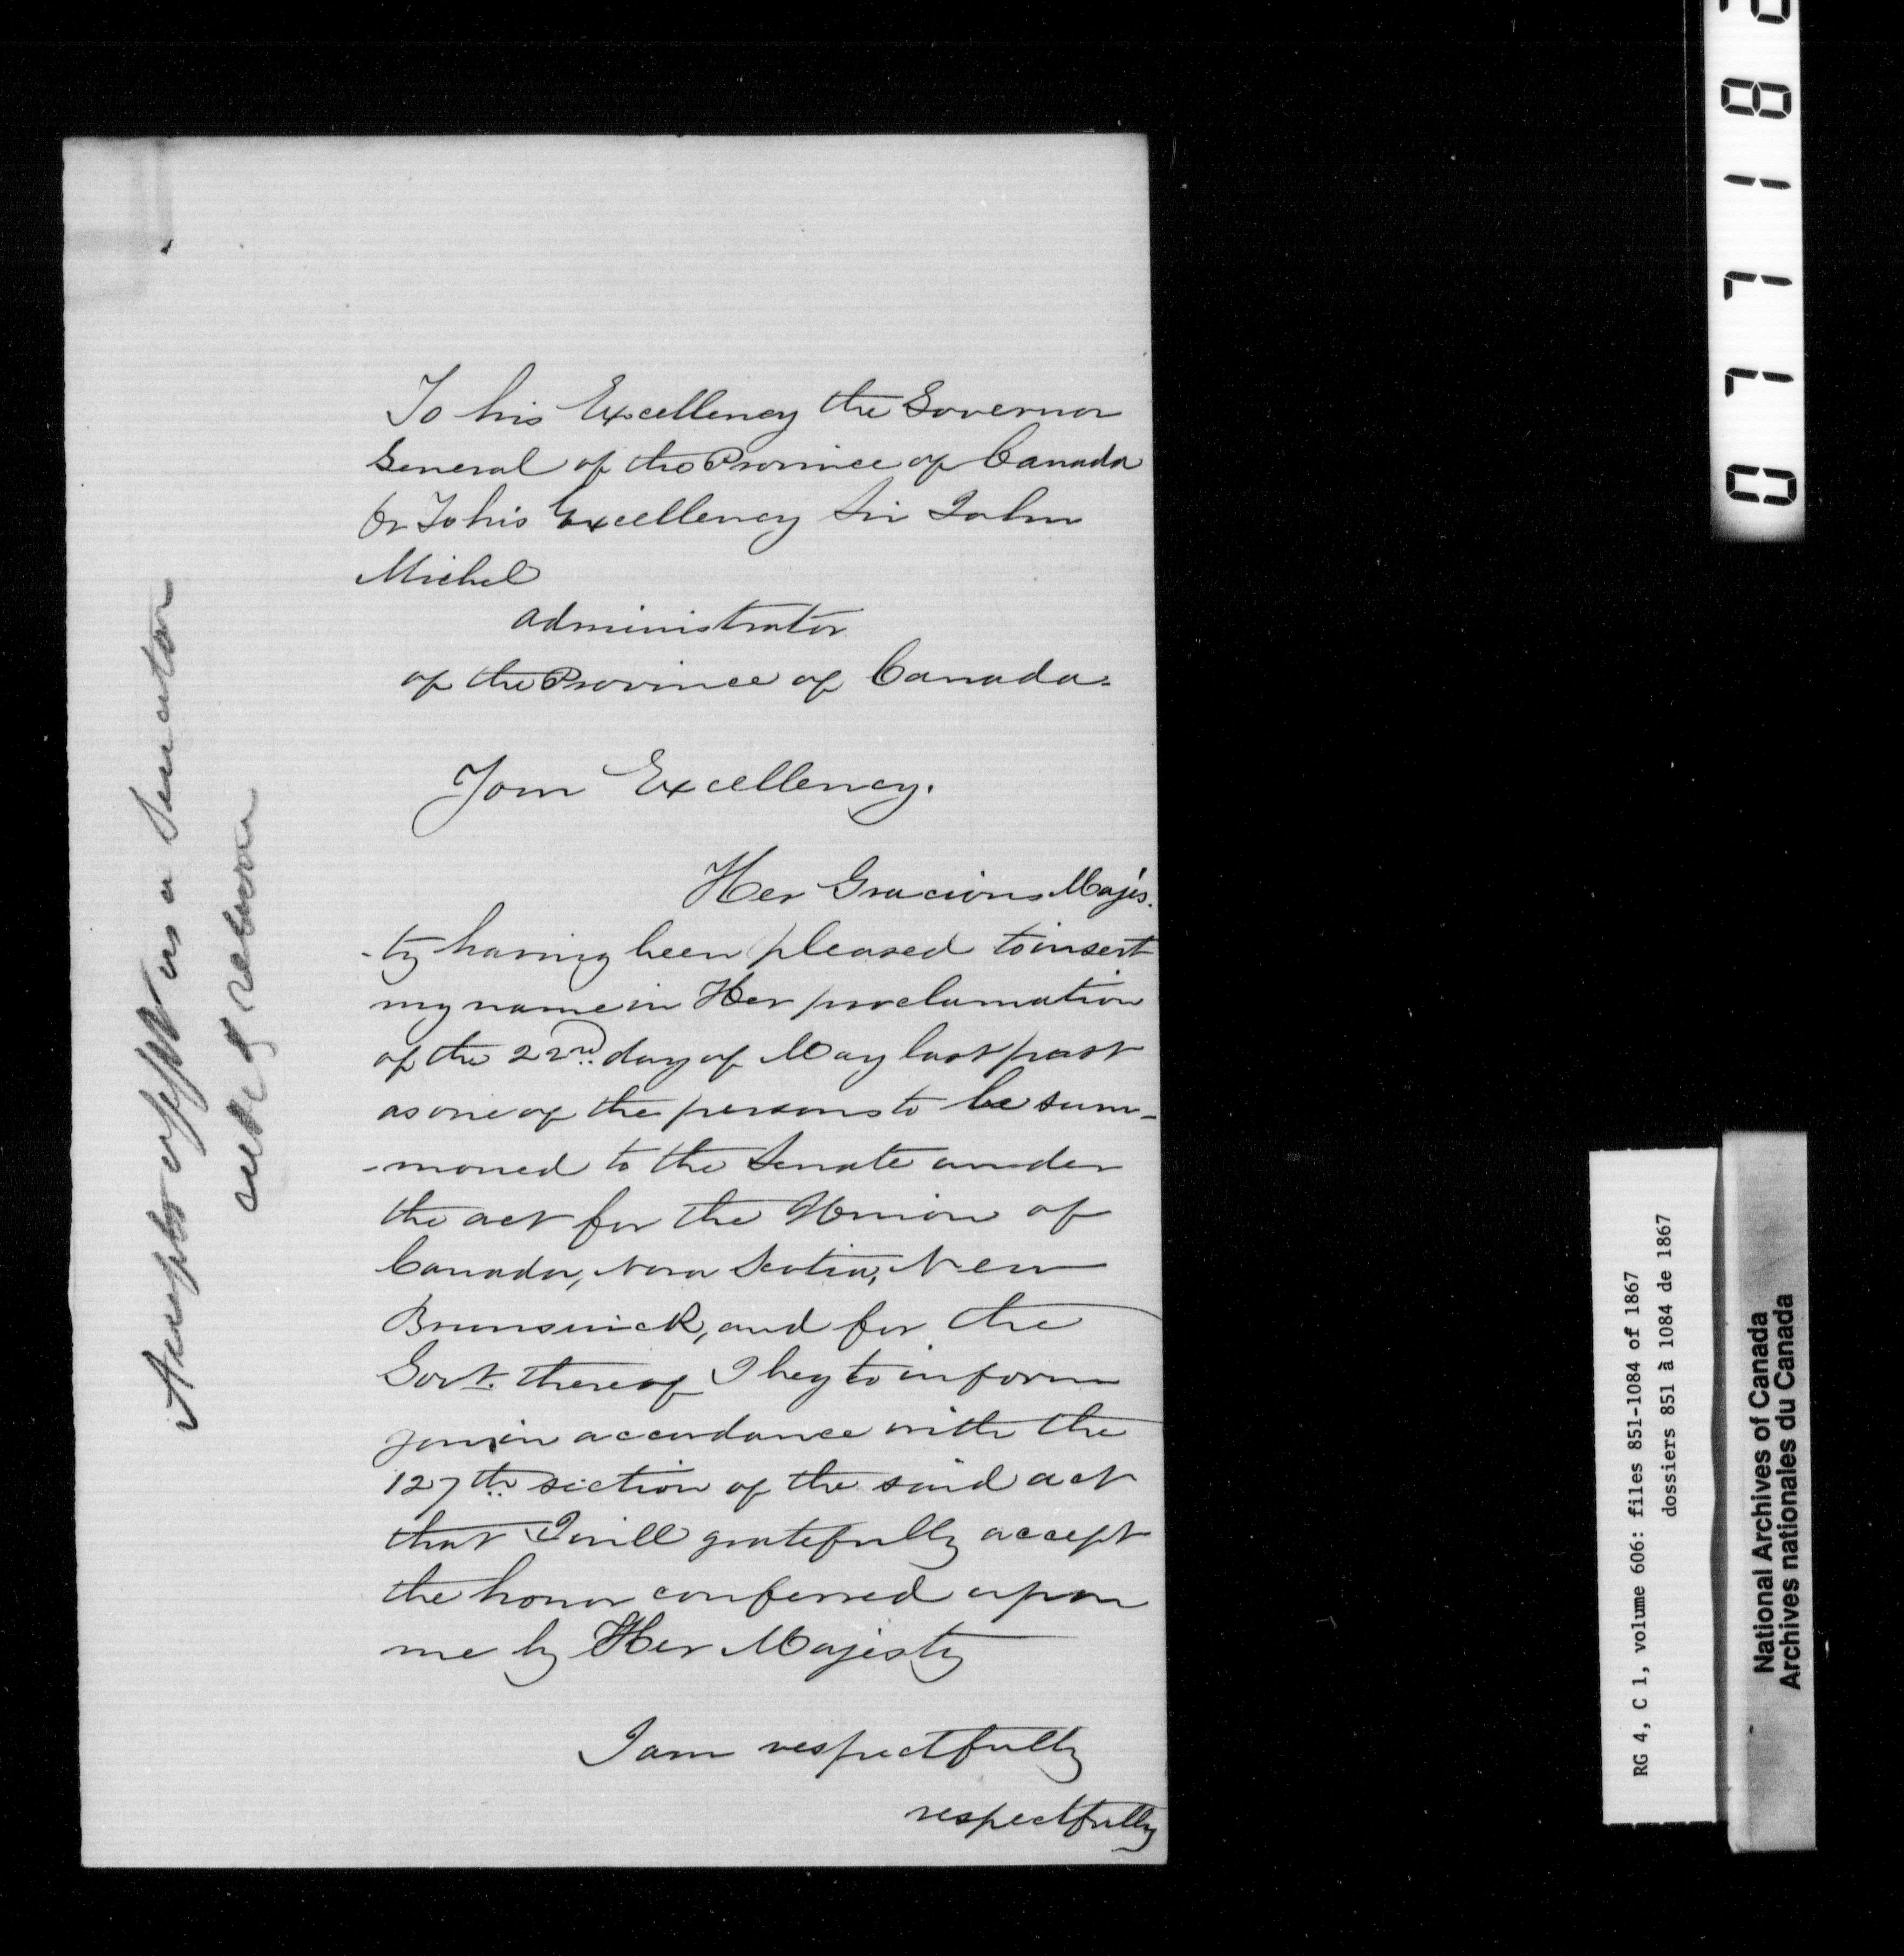 To his Excellency the Governor
General of the Province of Canada
Or To his Excellency Sir John
Michel
administrator
of the Province of Canada.
Your Excellency.
Her Gracious Majes.
-ty having been pleased to insert
my name in Her proclamation
of the 22nd. day of May last past
as one of the persons to be sum-
-moned to the Senate under
the act for the Union of
Canada, Nova Scotia, New
Brunswick, and for the
Govt. thereof I beg to inform
you in accordance with the
127th. section of the said act
that I will gratefully accept
the honor conferred upon
me by Her Majesty
I am respectfully
respectfully
Accepts appt as a Senator
077182
RG 4, C 1, volume 606: files 851-1084 of 1867
dossiers 851 à 1084 de 1867
National Archives of Canada
Archives nationales du Canada